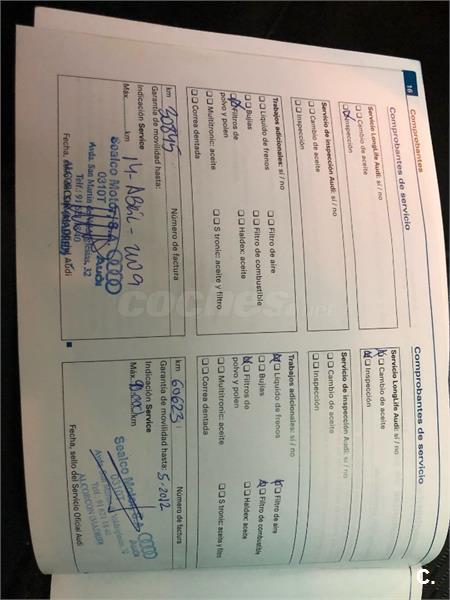 18
Comprobantes
Comprobantes de servicio
Servicio LongLife Audi: sí / no
Cambio de aceite
Inspección
Servicio de inspección Audi: sí / no
Cambio de aceite
Inspección
Trabajos adicionales: sí / no
Líquido de frenos
Bujías
Filtros de
polvo y polen
Multitronic: aceite
Correa dentada
Filtro de aire
Filtro de combustible
Haldex: aceite
S tronic: aceite y filtro
km
Número de factura
Garantía de movilidad hasta:
14-ABRIL-2009
Indicación Service
Máx. km
Sealco Motor
0310T
Audi
Fecha, sello del Servicio Oficial Audi
Comprobantes de servicio
Servicio LongLife Audi: sí / no
Cambio de aceite
Inspección
Servicio de inspección Audi: sí / no
Cambio de aceite
Inspección
Trabajos adicionales: sí / no
Líquido de frenos
Bujías
Filtros de
polvo y polen
Multitronic: aceite
Correa dentada
Filtro de aire
Filtro de combustible
Haldex: aceite
S tronic: aceite y filtro
km 60623
Número de factura
Garantía de movilidad hasta: 5-2012
Indicación Service
Máx. km
Sealco Motor
0310T
Audi
ALCORCON (MADRID)
Fecha, sello del Servicio Oficial Audi
coches.net
C.